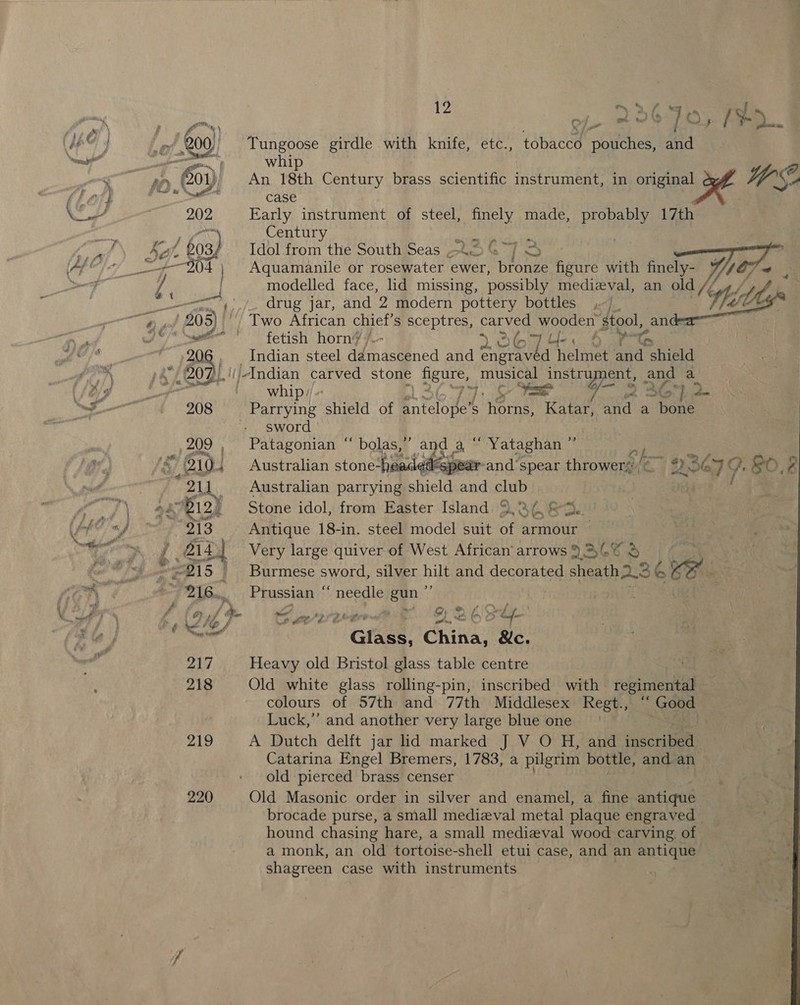 12
23670, 1 & 2
200 Tungoose girdle with knife, etc., tobacco pouches, and
whip
201 An 18th Century brass scientific instrument, in original
case
202 Early instrument of steel, finely made, probably 17th
Century
203 Idol from the South Seas 23673
204 Aquamanile or rosewater ewer, bronze figure with finely-
modelled face, lid missing, possibly mediæval, an old
drug jar, and 2 modern pottery bottles
205 Two African chief's sceptres, carved wooden stool, and a
fetish horn 23674
206 Indian steel damascened and engraved helmet and shield
207 Indian carved stone figure, musical instrument, and a
whip 23677. 23672
208 Parrying shield of antelope's horns, Katar, and a bone
sword
209 Patagonian “ bolas,” and a “ Yataghan ”
210 Australian stone-headed spear and spear throwers 23679. 80,
211 Australian parrying shield and club
212 Stone idol, from Easter Island 23682.
213 Antique 18-in. steel model suit of armour
214 Very large quiver of West African arrows 23683
215 Burmese sword, silver hilt and decorated sheath 23688
216 Prussian “ needle gun ”
23684
Glass, China, &c.
217 Heavy old Bristol glass table centre
218 Old white glass rolling-pin, inscribed with regimental
colours of 57th and 77th Middlesex Regt., “ Good
Luck,” and another very large blue one
219 A Dutch delft jar lid marked J V O H, and inscribed
Catarina Engel Bremers, 1783, a pilgrim bottle, and an
old pierced brass censer
220 Old Masonic order in silver and enamel, a fine antique
brocade purse, a small mediæval metal plaque engraved
hound chasing hare, a small mediæval wood carving of
a monk, an old tortoise-shell etui case, and an antique
shagreen case with instruments